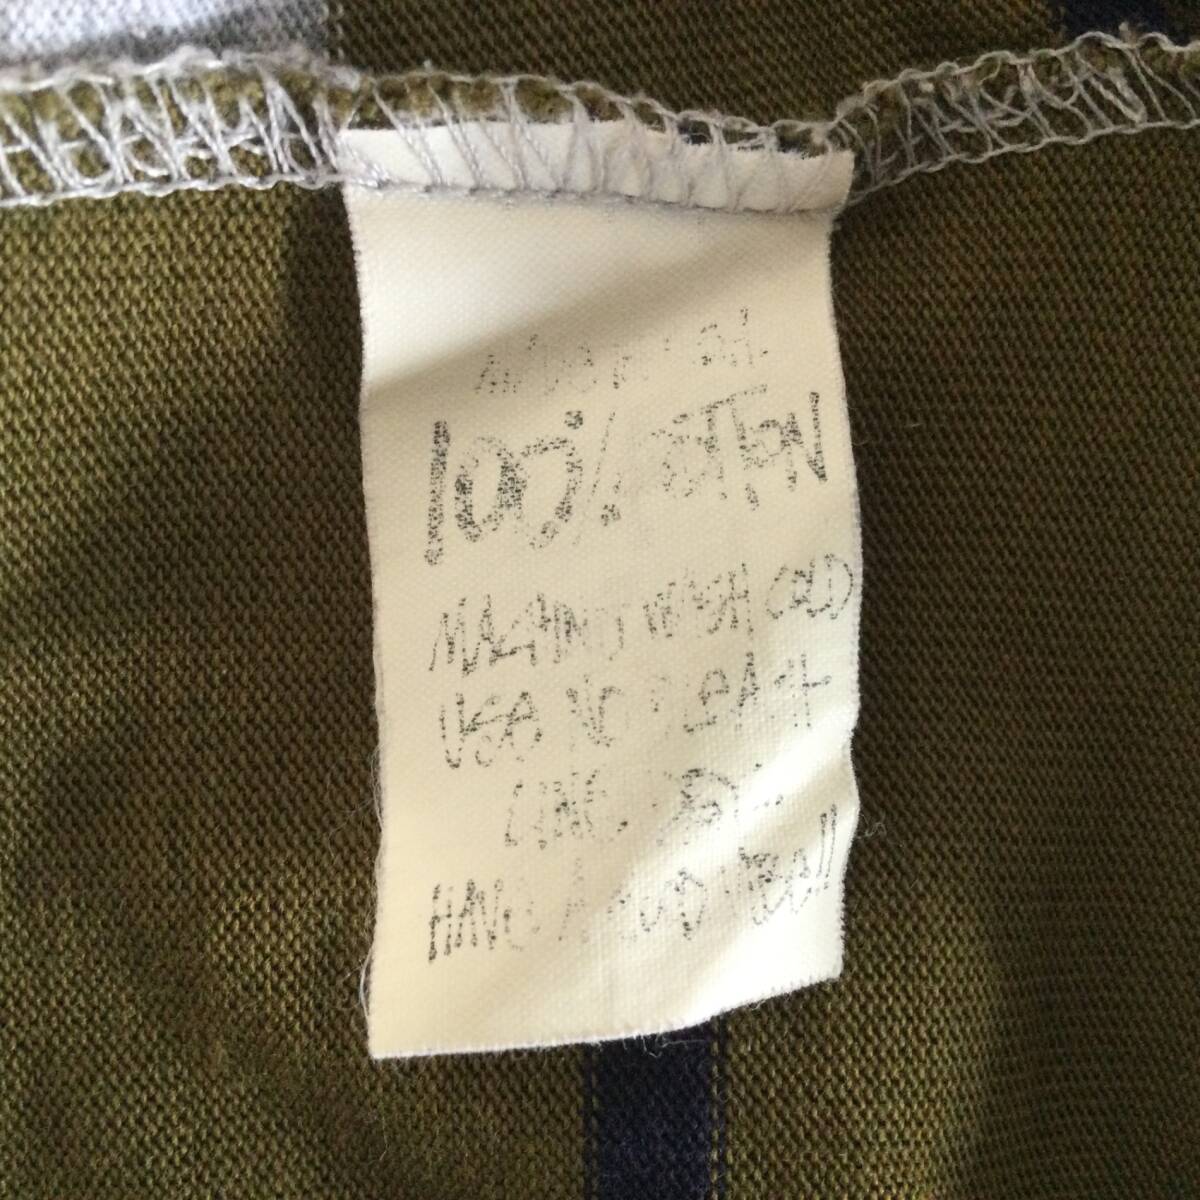 100% COTTON
MACHINE WASH COLD
USE NO BLEACH
LINE DRY
HAVE A GOOD TIME!!